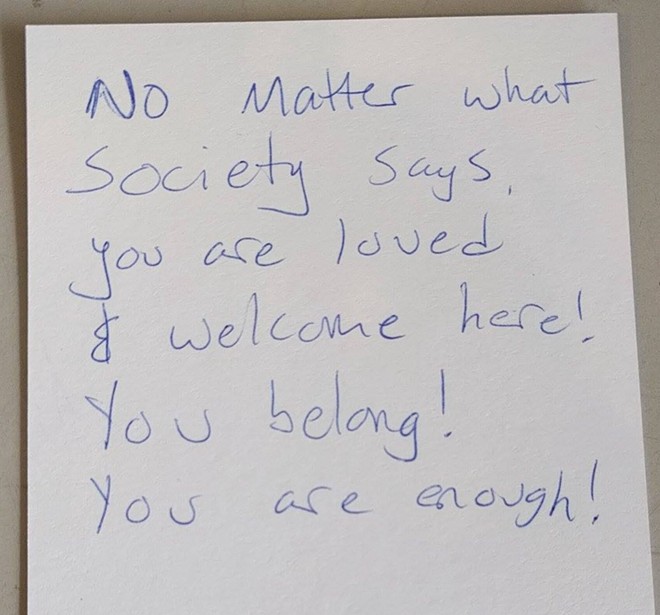 No Matter what
Society says,
you are loved
& welcome here!
You belong!
You are enough!